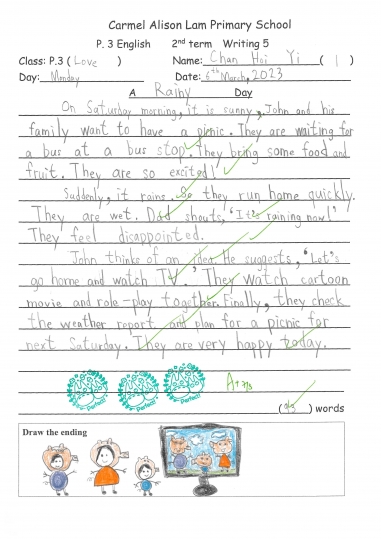 Carmel Alison Lam Primary School
P. 3 English 2nd term Writing 5
Class: P.3 ( Love ) Name: Chan Hoi Yi ( 1 )
Day: Monday Date: 6th March, 2023
A Rainy Day
On Saturday morning, it is sunny, John and his
family want to have a picnic. They are waiting for
a bus at a bus stop. They bring some food and
fruit. They are so excited!
Suddenly, it rains. So they run home quickly.
They are wet. Dad shouts, 'It's raining now!'
They feel disappointed.
John thinke of an idea. He suggests, 'Let's
go home and watch TV.' They watch cartoon
movie and role-play together. Finally, they check
the weather report and plan for a picnic for
next Saturday. They are very happy today.
Perfect Perfect Perfect
( ) words
Draw the ending